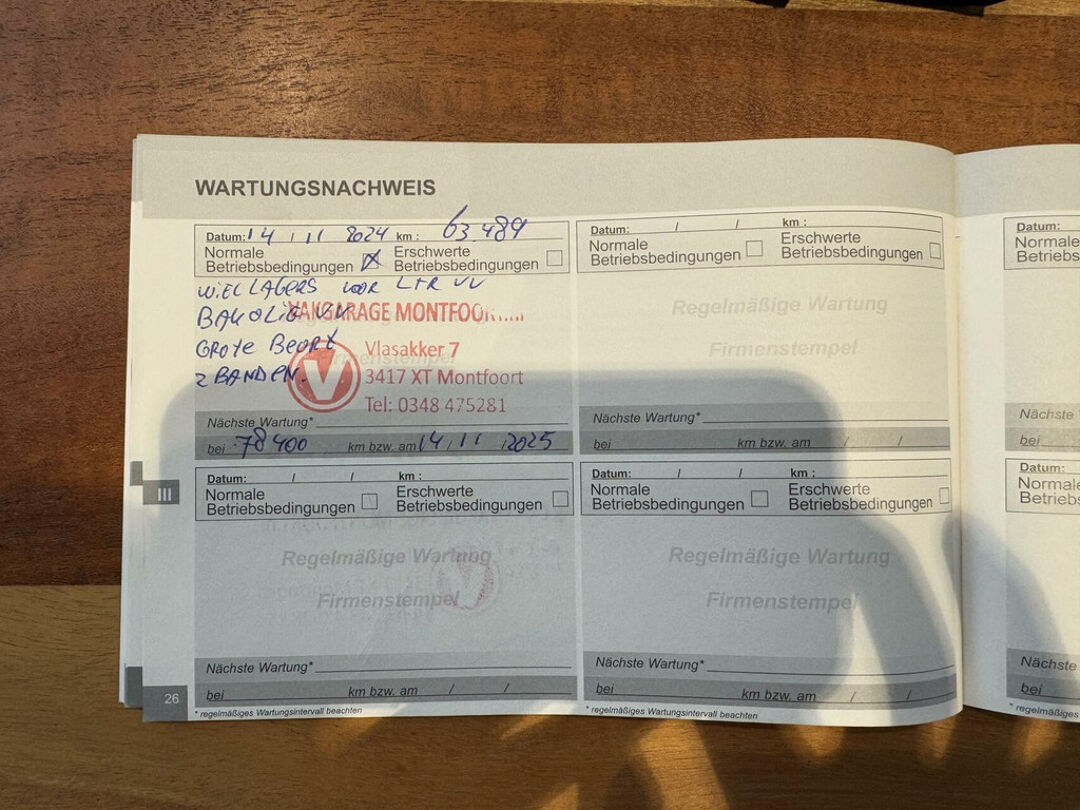 WARTUNGSNACHWEIS
Datum: 14 / 11 2024 km : 63.489
Normale Betriebsbedingungen
Erschwerte Betriebsbedingungen
WIEL LAGERS VOOR L+R VV
VAKGARAGE MONTFOORT
BAK OLIE VV
GROTE BEURT
Vlasakker 7
2 BANDEN.
V
3417 XT Montfoort
Tel: 0348 475281
Nächste Wartung*
bei 78400 km bzw. am 14 / 11 / 2025
Datum: / / km :
Normale Betriebsbedingungen
Erschwerte Betriebsbedingungen
Regelmäßige Wartung
Firmenstempel
Nächste Wartung*
bei km bzw. am / /
Datum: / / km :
Normale Betriebsbedingungen
Erschwerte Betriebsbedingungen
Regelmäßige Wartung
Firmenstempel
Nächste Wartung*
bei km bzw. am / /
* regelmäßiges Wartungsintervall beachten
Datum: / / km :
Normale Betriebsbedingungen
Erschwerte Betriebsbedingungen
Regelmäßige Wartung
Firmenstempel
Nächste Wartung*
bei km bzw. am / /
* regelmäßiges Wartungsintervall beachten
III
26
Datum:
Normale
Nächste
bei
Datum:
Normale
Nächste
bei